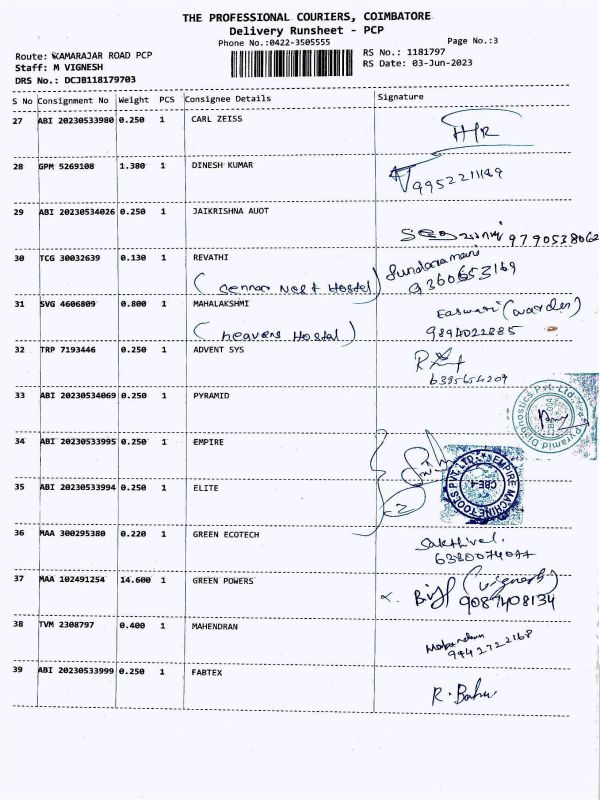 THE PROFESSIONAL COURIERS, COIMBATORE
Delivery Runsheet - PCP
Phone No.:0422-3505555
Page No.:3
Route: KAMARAJAR ROAD PCP
RS No.: 1181797
Staff: M VIGNESH
RS Date: 03-Jun-2023
DRS No.: DCJB118179703
S No Consignment No Weight PCS Consignee Details Signature
27 ABI 20230533980 0.250 1 CARL ZEISS
28 GPM 5269108 1.380 1 DINESH KUMAR
29 ABI 20230534026 0.250 1 JAIKRISHNA AUOT
9790538062
30 TCG 30032639 0.130 1 REVATHI
9360653169
31 SVG 4606809 0.800 1 MAHALAKSHMI Easwari (warden)
(heavens Hostel) 9894022885
32 TRP 7193446 0.250 1 ADVENT SYS
6385654207
33 ABI 20230534069 0.250 1 PYRAMID
Pyramid Diagnostics Pvt. Ltd.
34 ABI 20230533995 0.250 1 EMPIRE
EMPIRE MACHINE TOOLS PVT. LTD.
CBE-4
35 ABI 20230533994 0.250 1 ELITE
36 MAA 300295380 0.220 1 GREEN ECOTECH Sakthivel.
37 MAA 102491254 14.600 1 GREEN POWERS (Vignesh)
9087408134
38 TVM 2308797 0.400 1 MAHENDRAN
9942722168
39 ABI 20230533999 0.250 1 FABTEX
R. Babu